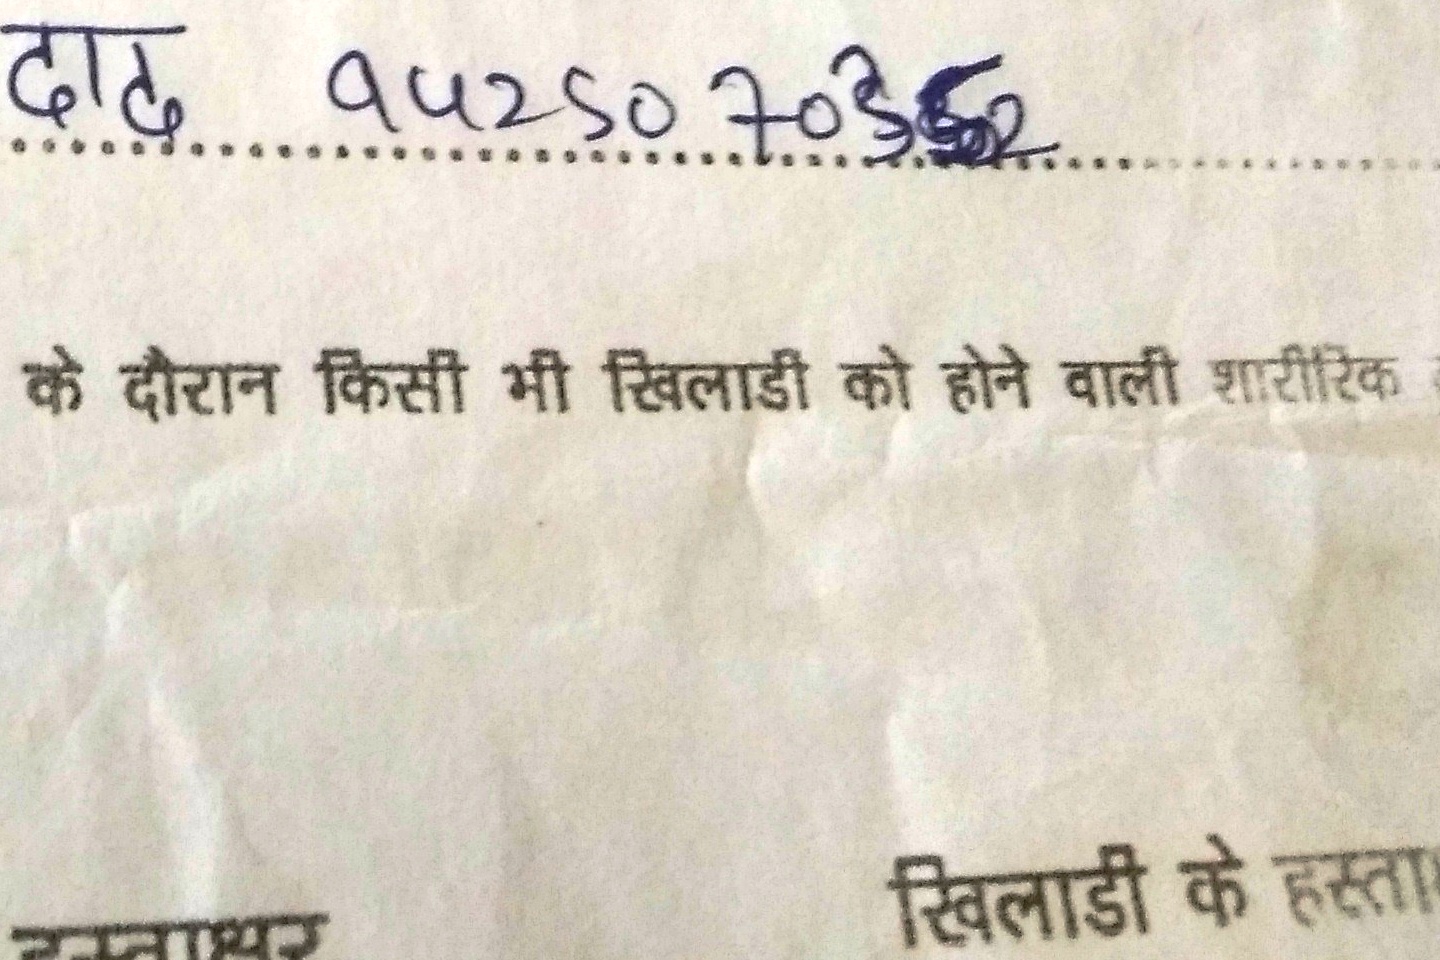 दाद 94250703 2
के दौरान किसी भी खिलाडी को होने वाली शारीरिक
खिलाडी के
हस्ताक्षर